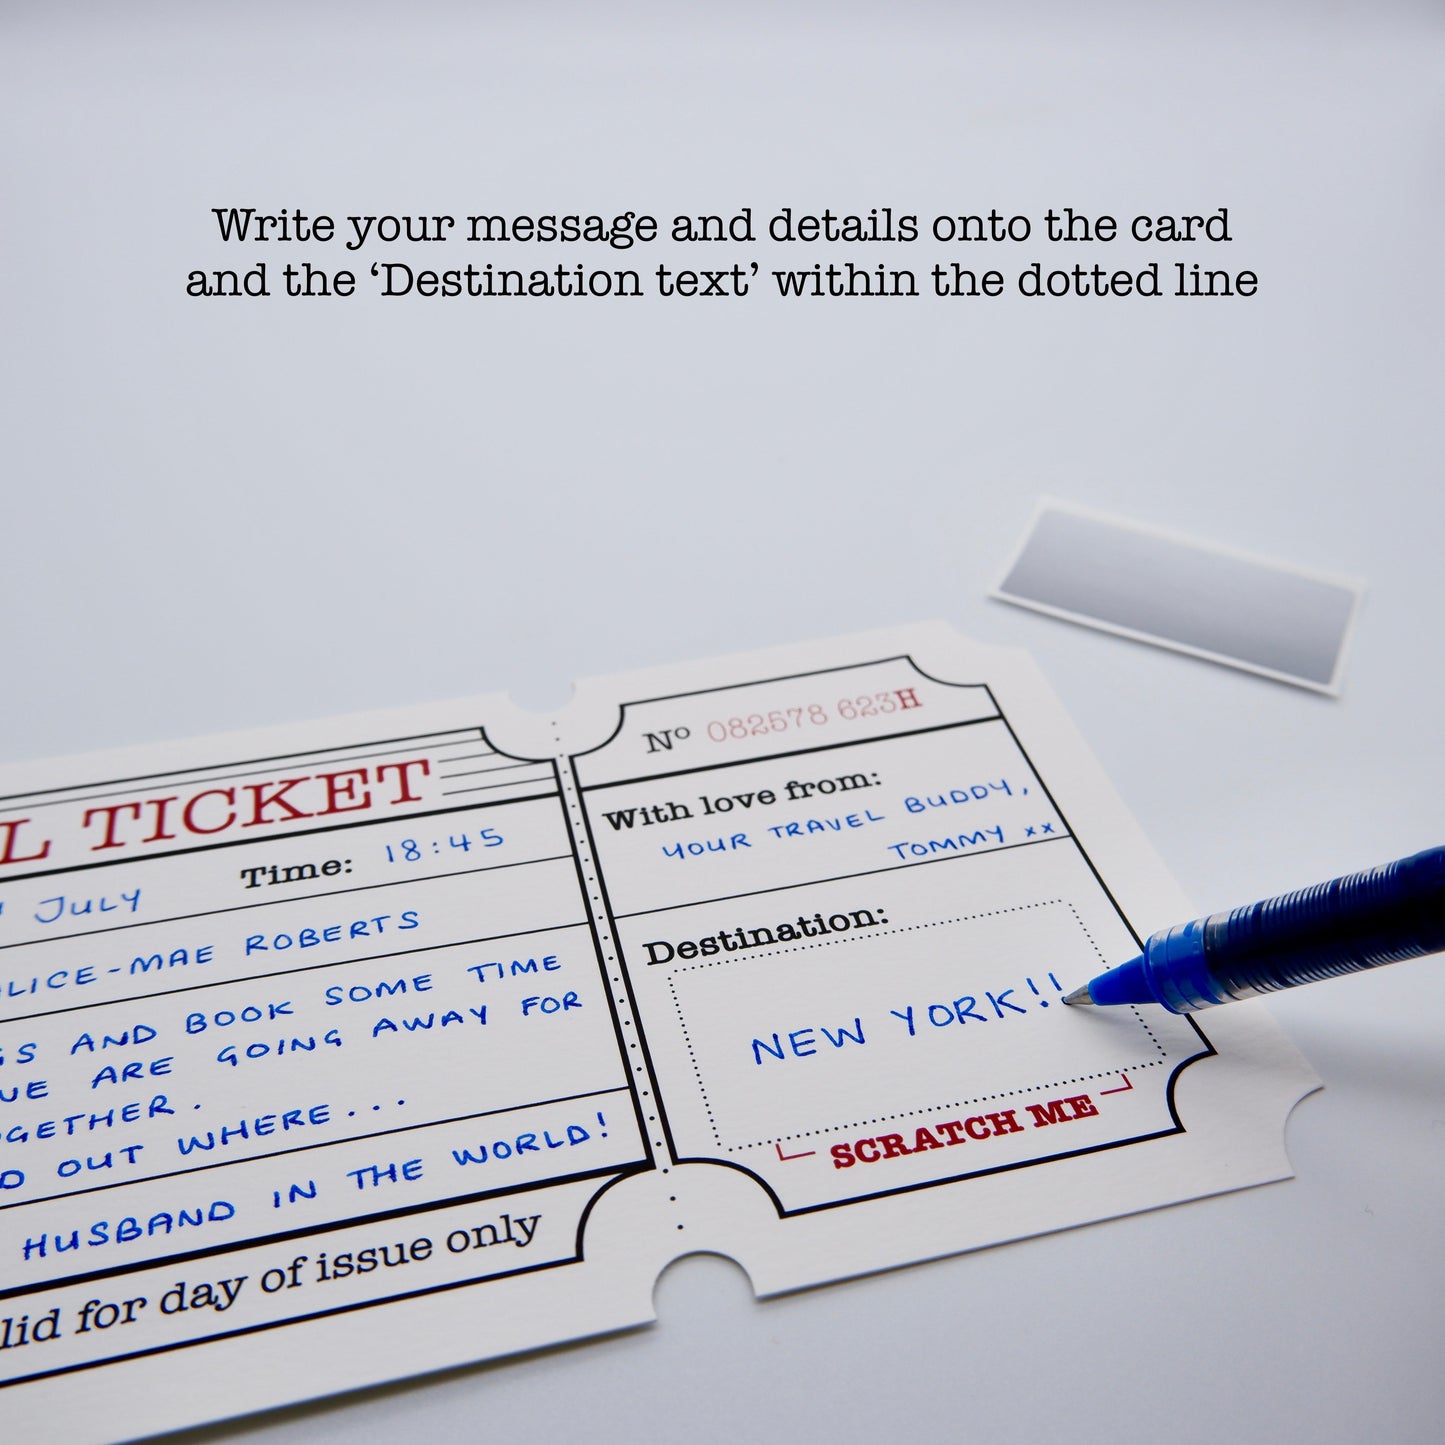 Write your message and details onto the card
and the ‘Destination text’ within the dotted line
TICKET
JULY Time: 18:45
LICE-MAE ROBERTS
GS AND BOOK SOME TIME
ARE GOING AWAY FOR
GETHER.
OUT WHERE...
HUSBAND IN THE WORLD!
lid for day of issue only
Nº 082578 623H
With love from:
YOUR TRAVEL BUDDY,
TOMMY xx
Destination:
NEW YORK!!
SCRATCH ME